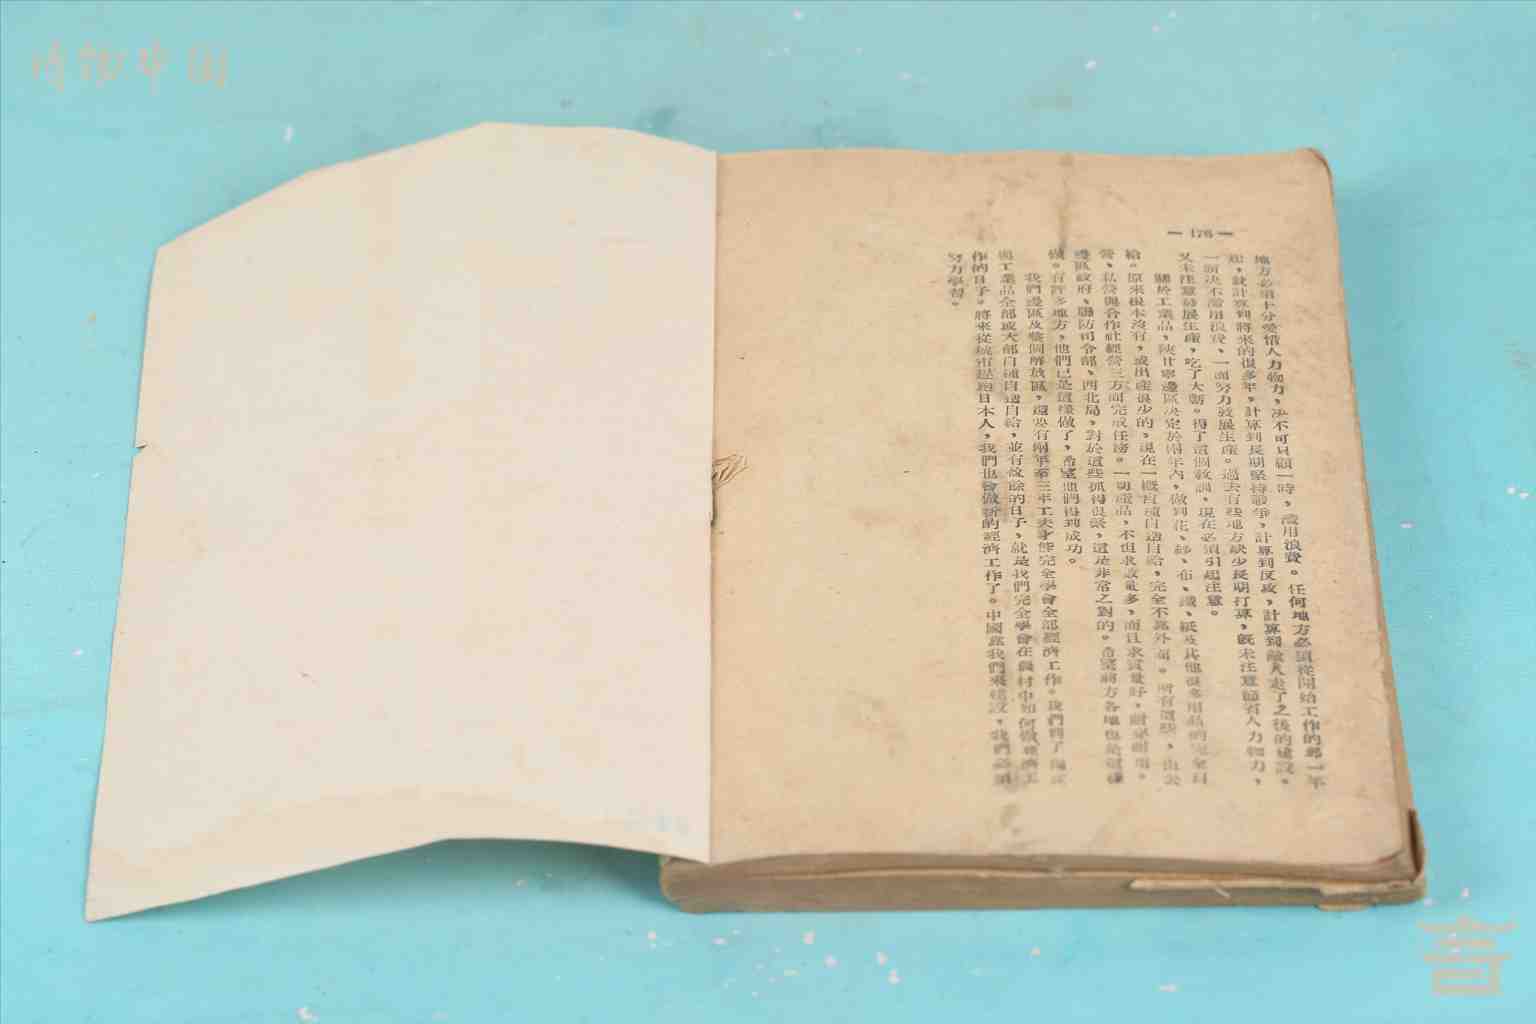 博物中国
— 176 —
地方必須十分愛惜人力物力，決不可只顧一時，濫用浪費。任何地方必須從開始工作的那一年
起，就計算到將來的很多年，計算到長期堅持戰爭，計算到反攻，計算到敵人走了之後的建設。
一面決不濫用浪費，一面努力發展生產。過去有些地方缺少長期打算，既未注意節省人力物力，
又未注意發展生產，吃了大虧。得了這個教訓，現在必須引起注意。
關於工業品，陝甘寧邊區決定於兩年內，做到花、紗、布、鐵、紙及其他很多用品的完全自
給。原來根本沒有，或出產很少的，現在一概自種自造自給，完全不靠外面。所有這些，由公
營、私營與合作社經營三方面完成任務。一切產品，不但求數量多，而且求質量好，耐穿耐用。
邊區政府、聯防司令部、西北局，對於這些抓得很緊，這是非常之對的。希望前方各地也是這樣
做。有許多地方，他們已是這樣做了，希望他們得到成功。
我們邊區及整個解放區，還要有兩年至三年工夫才能完全學會全部經濟工作。我們到了糧食
與工業品全部或大部自種自造自給，並有盈餘的日子，就是我們完全學會在農村中如何做經濟工
作的日子。將來從城市趕跑日本人，我們也會做新的經濟工作了。中國靠我們來建設，我們必須
努力學習。